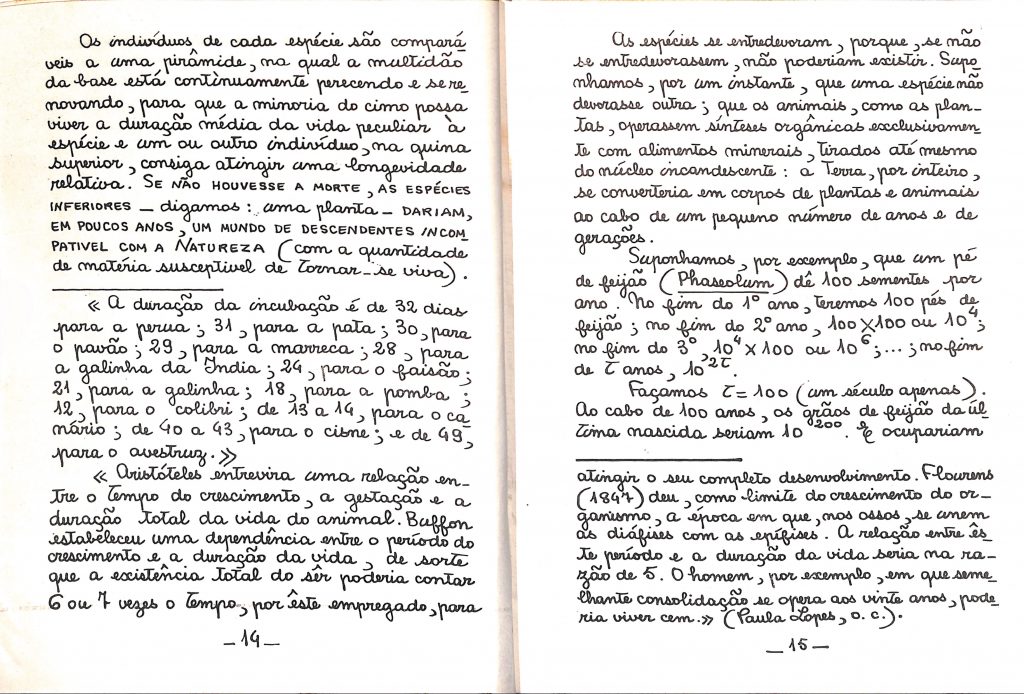 Os indivíduos de cada espécie são compará
veis a uma pirâmide, na qual a multidão
da base está contìnuamente perecendo e se re_
novando, para que a minoria do cimo possa
viver a duração média da vida peculiar à
espécie e um ou outro indivíduo, na quina
superior, consiga atingir uma longevidade
relativa. SE NÃO HOUVESSE A MORTE, AS ESPÉCIES
INFERIORES _ digamos: uma planta _ DARIAM,
EM POUCOS ANOS, UM MUNDO DE DESCENDENTES INCOM_
PATIVEL COM A NATUREZA (com a quantidade
de matéria susceptivel de tornar_se viva).
« A duração da incubação é de 32 dias
para a perua; 31, para a pata; 30, para
o pavão; 29, para a marreca; 28, para
a galinha da Índia; 24, para o faisão;
21, para a galinha; 18, para a pomba;
12, para o colibri; de 13 a 14, para o ca_
nário; de 40 a 43, para o cisne; e de 49,
para o avestruz.»
« Aristóteles entrevira uma relação en_
tre o tempo do crescimento, a gestação e a
duração total da vida do animal. Buffon
estabeleceu uma dependência entre o período do
crescimento e a duração da vida, de sorte
que a existência total do sêr poderia contar
6 ou 7 vezes o tempo, por êste empregado, para
_ 14 _
As espécies se entredevoram, porque, se não
se entredevorassem, não poderiam existir. Supo_
nhamos, por um instante, que uma espécie não
devorasse outra; que os animais, como as plan_
tas, operassem sínteses orgânicas exclusivamen_
te com alimentos minerais, tirados até mesmo
do núcleo incandescente: a Terra, por inteiro,
se converteria em corpos de plantas e animais
ao cabo de um pequeno número de anos e de
gerações.
Suponhamos, por exemplo, que um pé
de feijão (Phaseolum) dê 100 sementes por
ano. No fim do 1º ano, teremos 100 pés de
feijão; no fim do 2º ano, 100 × 100 ou 10⁴;
no fim do 3º, 10⁴ × 100 ou 10⁶; ...; no fim
de t anos, 10²ᵗ.
Façamos t = 100 (um século apenas).
Ao cabo de 100 anos, os grãos de feijão da úl_
tima nascida seriam 10²⁰⁰. E ocupariam
atingir o seu completo desenvolvimento. Flourens
(1847) deu, como limite do crescimento do or_
ganismo, a época em que, nos ossos, se unem
as diáfises com as epífises. A relação entre ês_
te período e a duração da vida seria na ra_
zão de 5. O homem, por exemplo, em que seme_
lhante consolidação se opera aos vinte anos, pode_
ria viver cem.» (Paula Lopes, o. c.).
_ 15 _